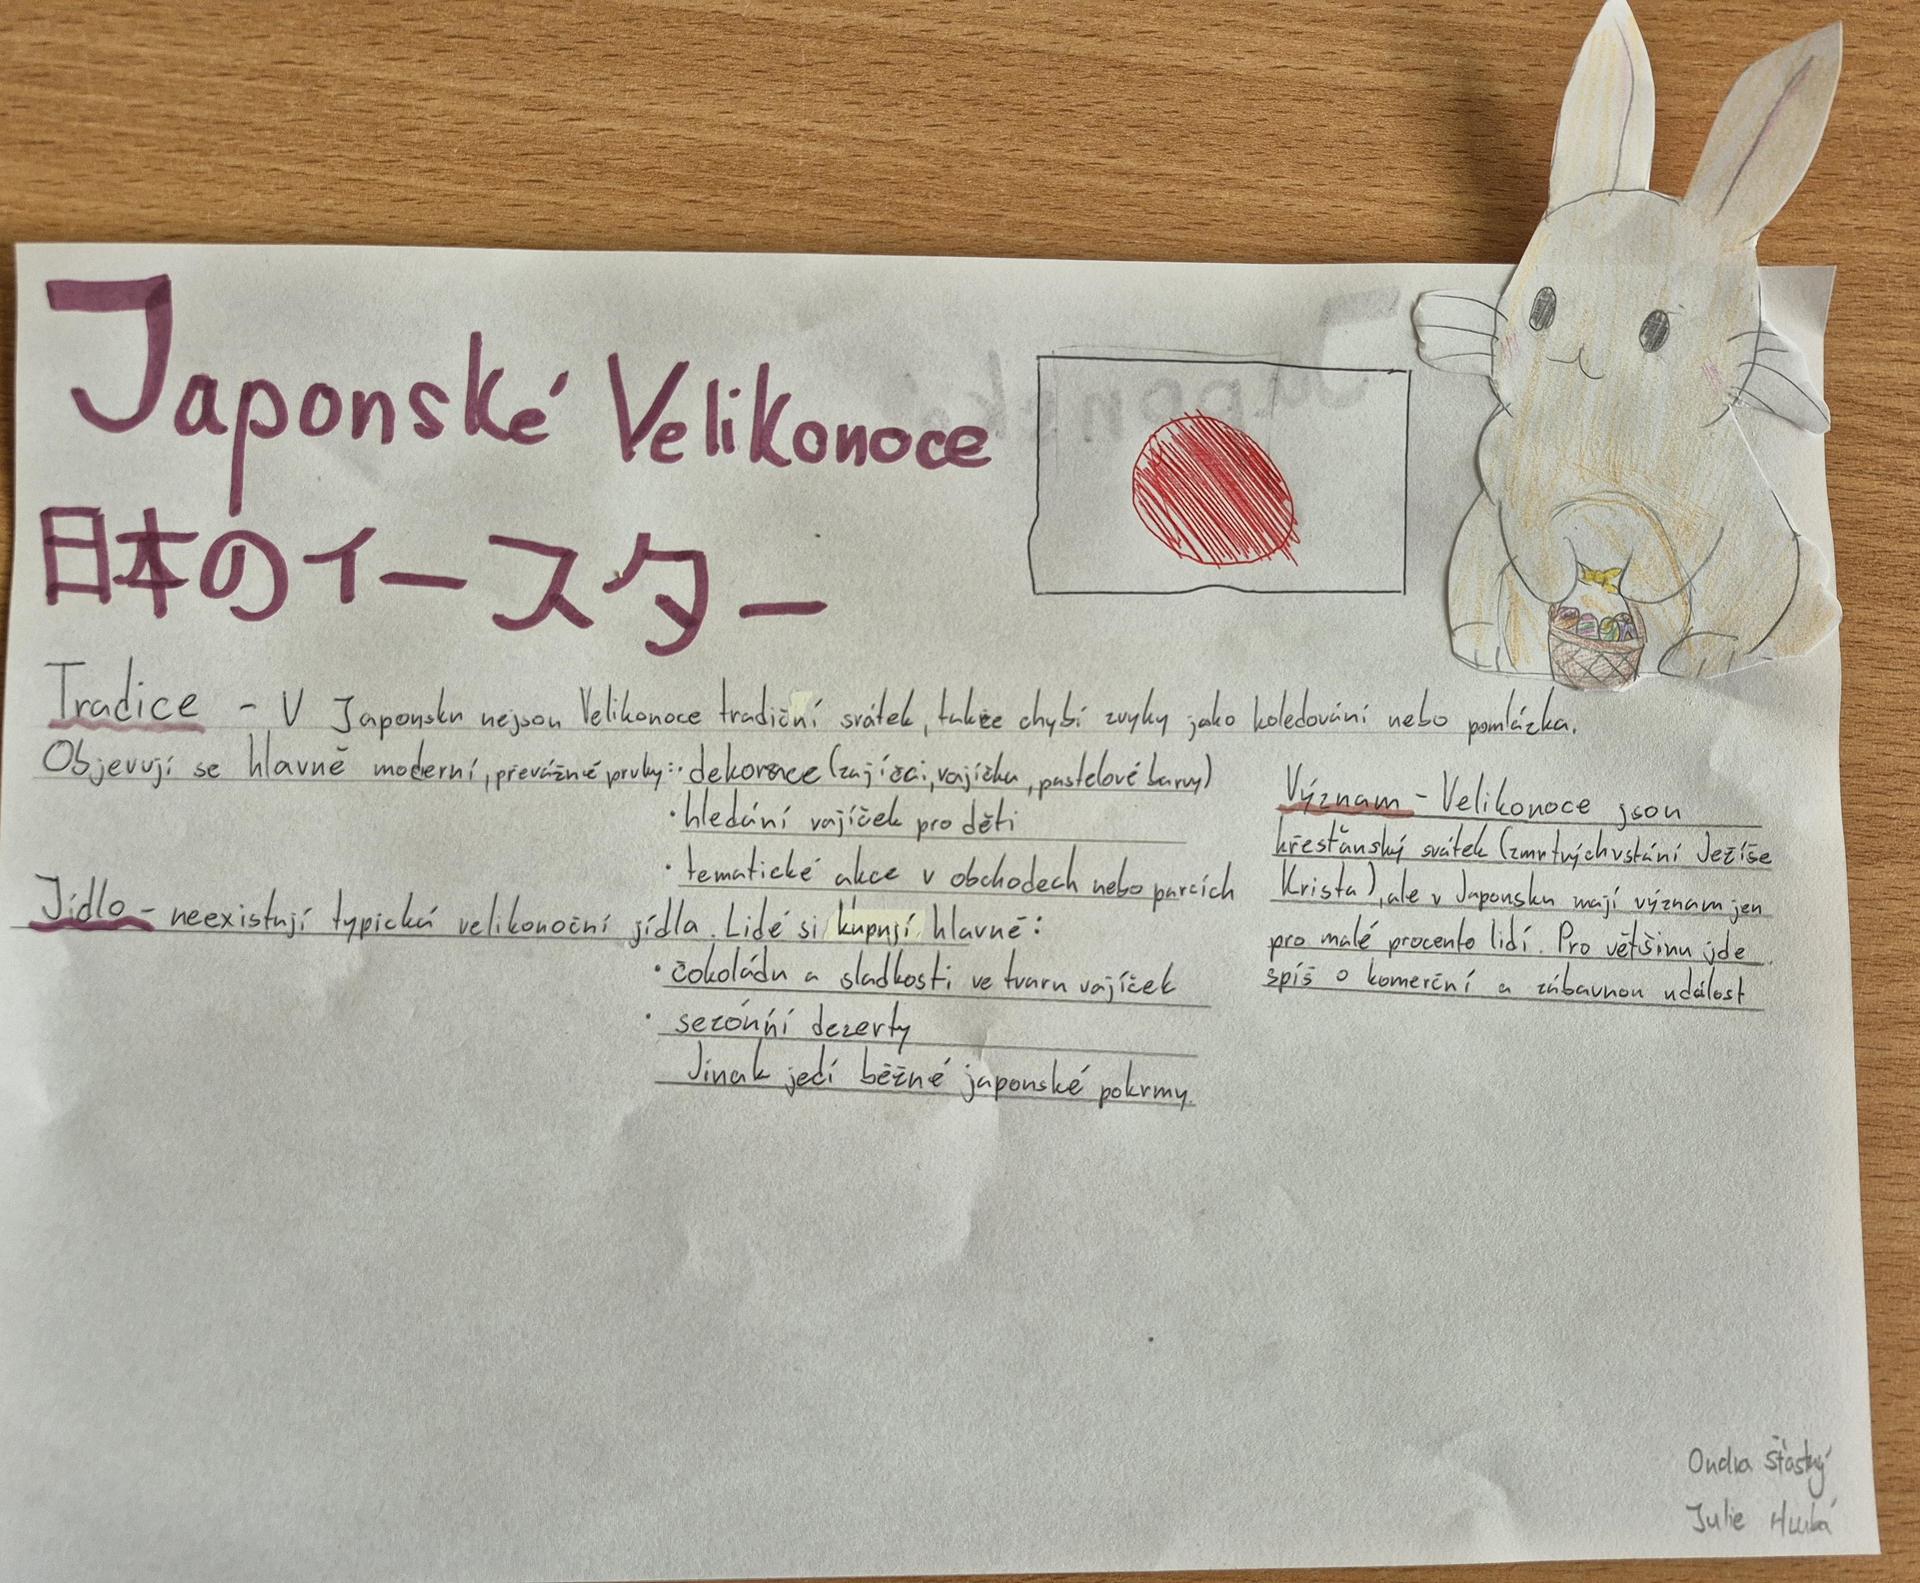 Japonské Velikonoce
日本のイースター
Tradice - V Japonsku nejsou Velikonoce tradiční svátek, takže chybí zvyky jako koledování nebo pomlázka.
Objevují se hlavně moderní, převážně prvky: · dekorace (zajíčci, vajíčka, pastelové barvy)
· hledání vajíček pro děti
· tematické akce v obchodech nebo parcích
Jídlo - neexistují typická velikonoční jídla. Lidé si kupují hlavně:
· čokoládu a sladkosti ve tvaru vajíček
· sezónní dezerty
Jinak jedí běžné japonské pokrmy.
Význam - Velikonoce jsou
křesťanský svátek (zmrtvýchvstání Ježíše
Krista), ale v Japonsku mají význam jen
pro malé procento lidí. Pro většinu jde
spíš o komerční a zábavnou událost
Ondra Šťastný
Julie